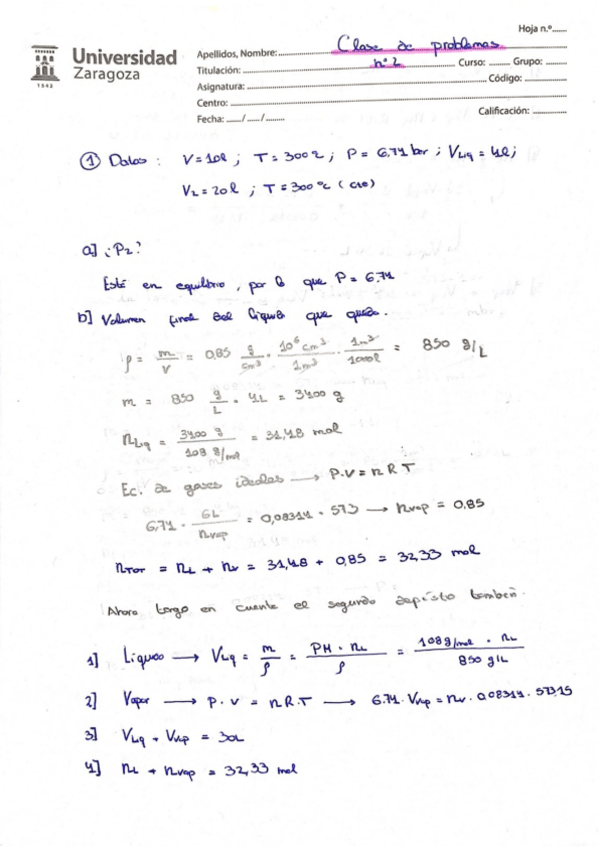 Hoja n.º......
Universidad
Zaragoza
1542
Apellidos, Nombre: Clase de problemas
Titulación: nº 2 Curso: ........ Grupo: ........
Asignatura: Código: ............
Centro:
Fecha: ...../...../....... Calificación: ............
① Datos : V = 10l ; T = 300ºC ; P = 6,71 bar ; VLiq = 4l ;
V2 = 20l ; T = 300ºC (cte)
a] ¿P2?
Está en equilibrio, por lo que P = 6,71
b] Volumen final del líquido que queda.
ρ = m/V = 0,85 g/cm³ · 10⁶ cm³/1m³ · 1m³/1000l = 850 g/L
m = 850 g/L · 4L = 3400 g
nLiq = 3400 g / 108 g/mol = 31,48 mol
Ec. de gases ideales → P·V = n R T
6,71 · 6L/nvap = 0,08314 · 573 → nvap = 0,85
nTOT = nL + nv = 31,48 + 0,85 = 32,33 mol
Ahora tengo en cuenta el segundo depósito también.
1] Líquido → VLiq = m/ρ = PM · nL/ρ = 108 g/mol · nL / 850 g/L
2] Vapor → P · V = n R · T → 6.71 · Vvap = nv · 0.08314 · 573,15
3] VLiq + Vvap = 30L
4] nL + nvap = 32,33 mol